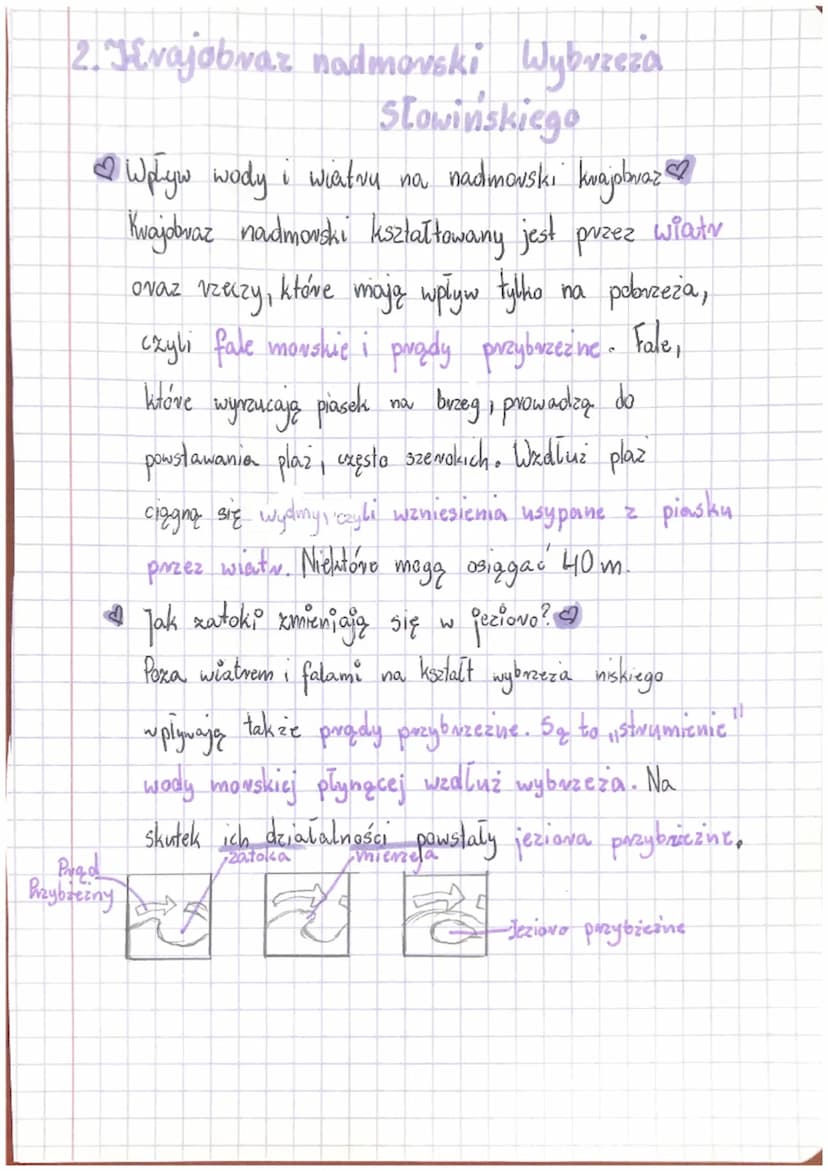 2. Krajobraz nadmorski Wybrzeża
Słowińskiego
Wpływ wody i wiatru na nadmorski krajobraz
Krajobraz nadmorski kształtowany jest przez wiatr
oraz rzeczy, które mają wpływ tylko na pobrzeża,
czyli fale morskie i prądy przybrzeżne. Fale,
które wyrzucają piasek na brzeg, prowadzą do
powstawania plaż, często szerokich. Wzdłuż plaż
ciągną się wydmy, czyli wzniesienia usypane z piasku
przez wiatr. Niektóre mogą osiągać 40 m.
Jak zatoki zmieniają się w jezioro?
Poza wiatrem i falami na kształt wybrzeża niskiego
wpływają także prądy przybrzeżne. Są to „strumienie"
wody morskiej płynącej wzdłuż wybrzeża. Na
skutek ich działalności powstały jeziora przybrzeżne.
zatoka mierzeja
Prąd
Przybrzeżny
Jezioro przybrzeżne